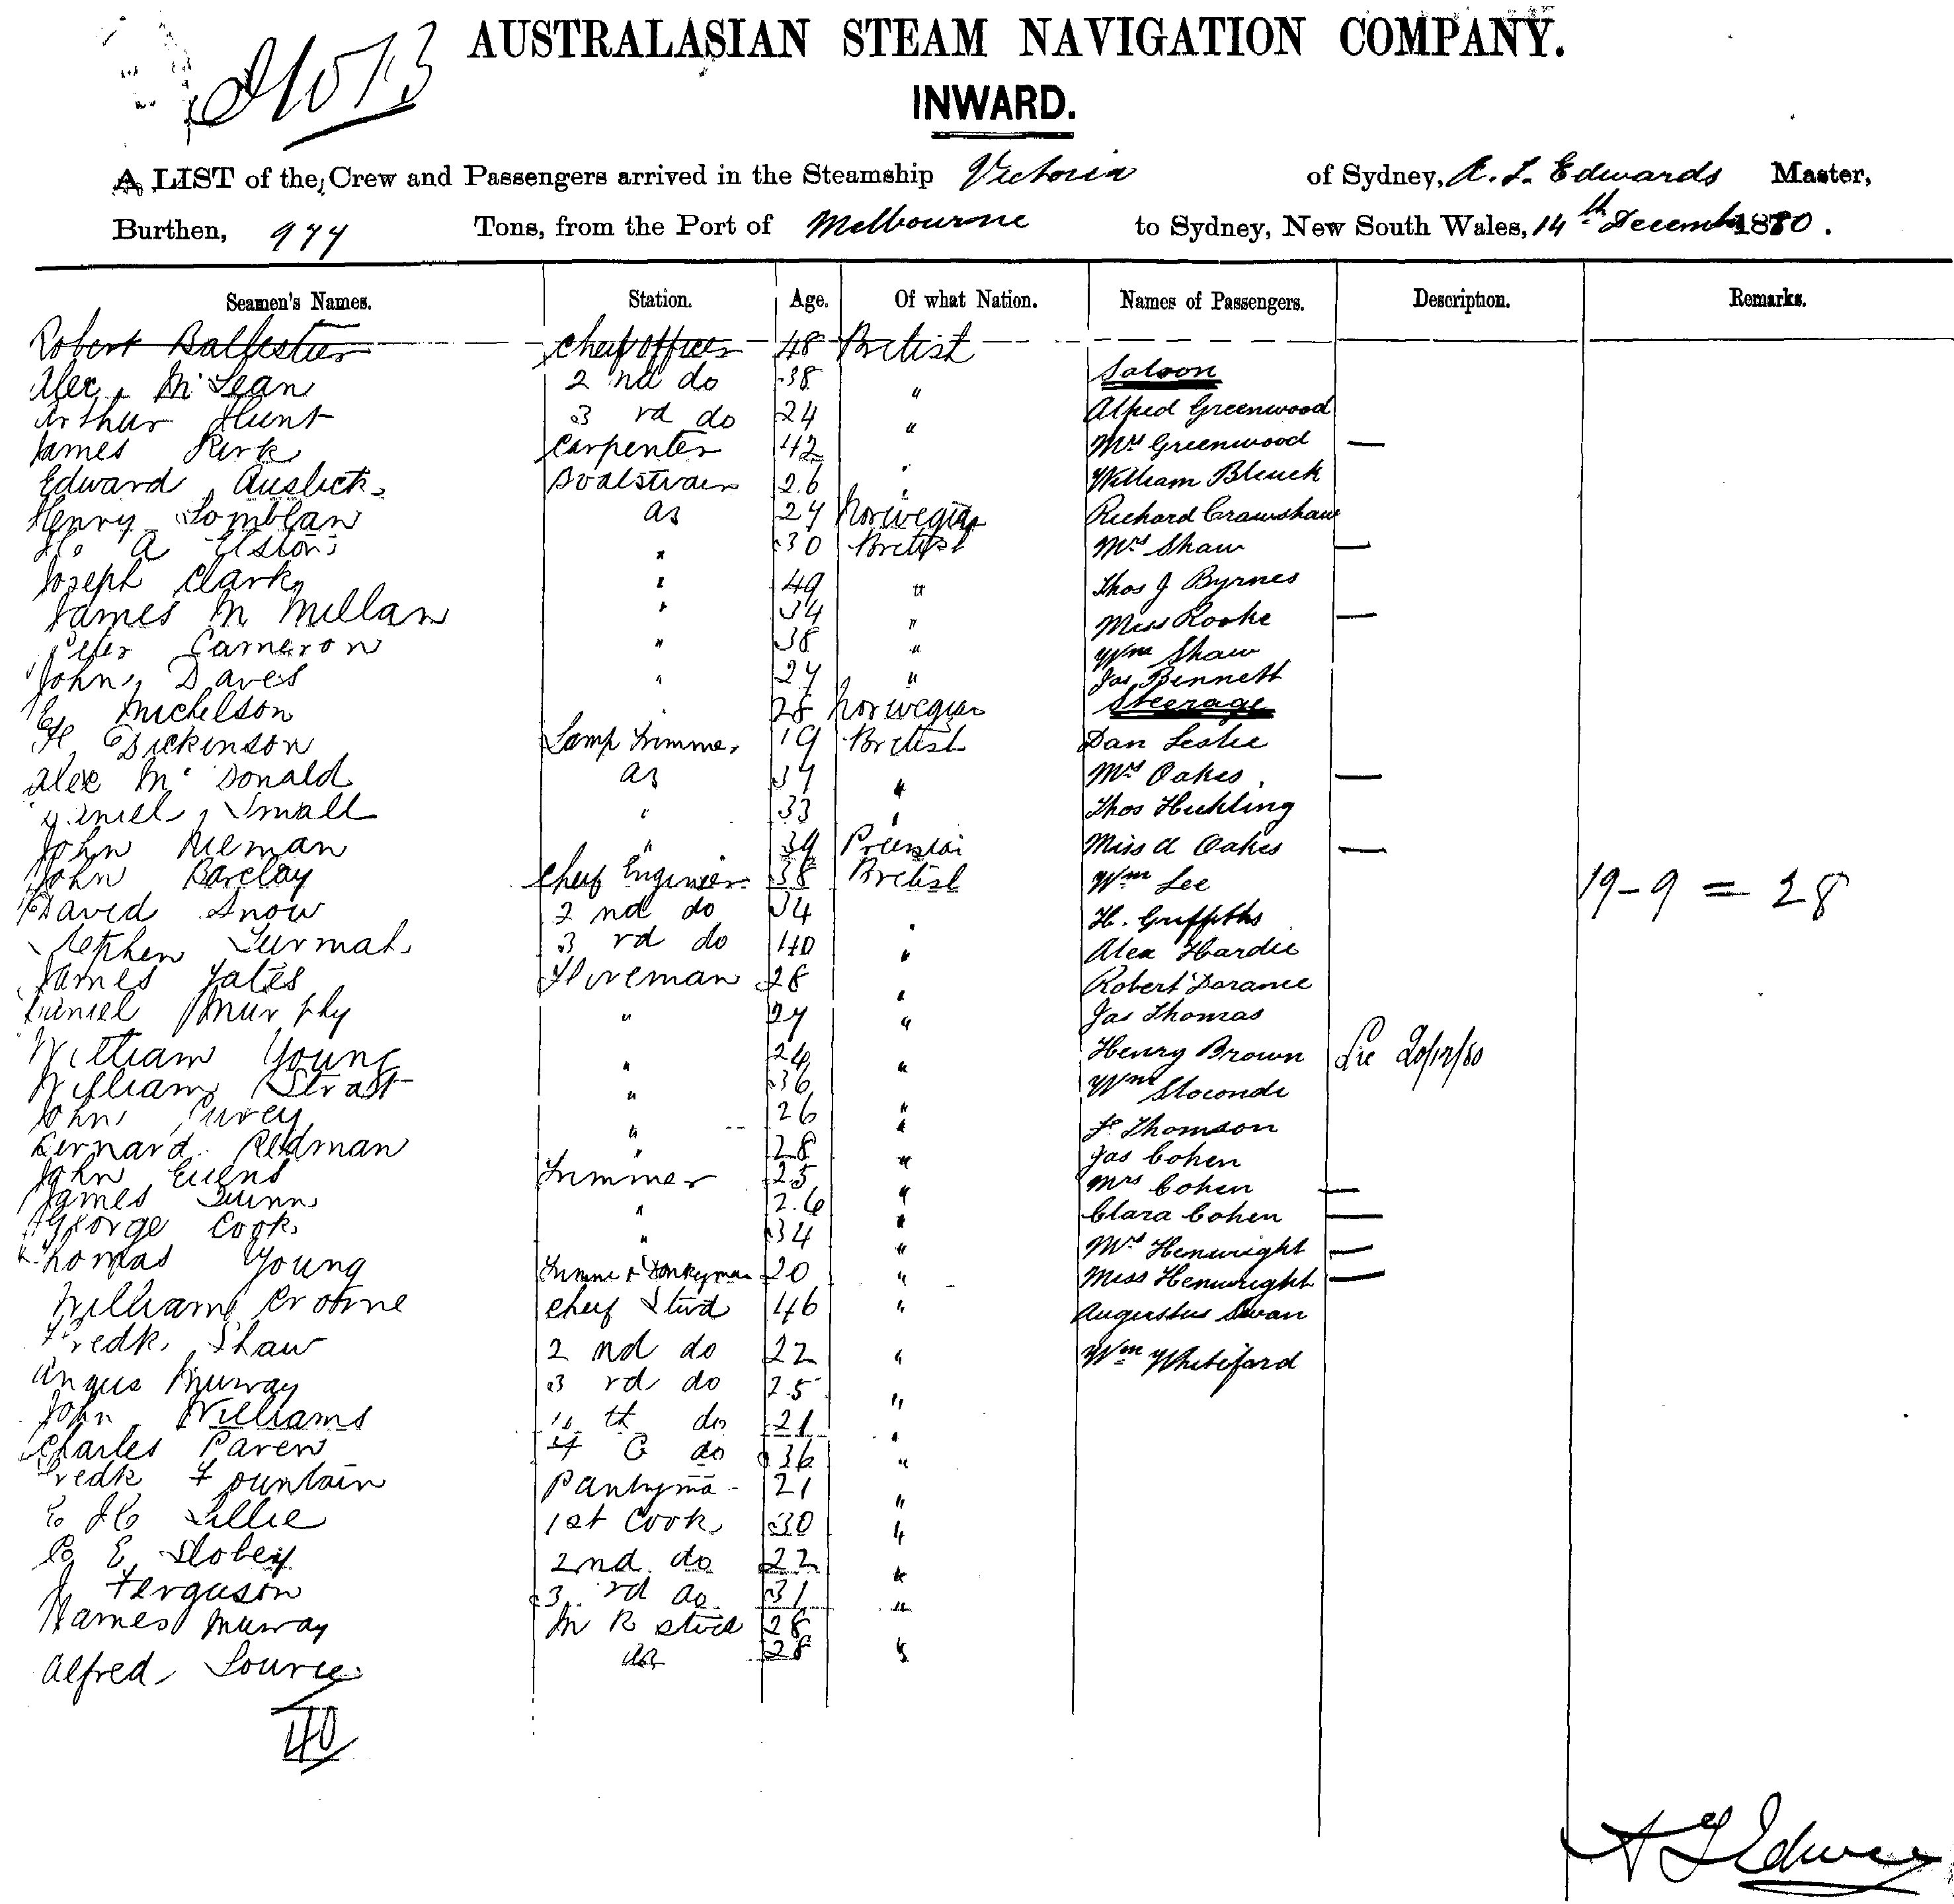 AUSTRALASIAN STEAM NAVIGATION COMPANY.
INWARD.
A LIST of the Crew and Passengers arrived in the Steamship Victoria of Sydney, A. L. Edwards Master,
Burthen, 977 Tons, from the Port of Melbourne to Sydney, New South Wales, 14th December 1880.
Seamen's Names. Station. Age. Of what Nation. Names of Passengers. Description. Remarks.
Robert Chief officer 48 British
Alex McLean 2nd do 38 " Saloon
Arthur Hunt 3rd do 24 " Alfred Greenwood
James Kirk Carpenter 42 " Mrs Greenwood —
Edward 26 " William Bleuck
Henry AB 27 Norwegian Richard Crawshaw
A Elston " 30 British Mrs Shaw —
Joseph Clark " 49 " Thos J Byrnes
James M Millan " 34 " Miss Rooke —
Peter Cameron " 38 " Wm Shaw
John Daves " 27 " Jas Bennett
Michelson " 28 Norwegian Steerage
H Dickinson Lamp Trimmer 19 British Dan Leslie
Alex McDonald AB 37 " Mrs Oakes —
Daniel Small " 33 " Thos Huhling
John Nieman " 39 Miss A Oakes —
John Barclay Cheif Engineer 38 British Wm Lee 19-9 = 28
David Snow 2nd do 34 " H. Griffiths
Stephen 3rd do 40 " Alex Hardie
James Yates Fireman 28 " Robert Dorance
Daniel Murphy " 27 " Jas Thomas
William Young " 24 " Henry Brown 20/12/80
William " 36 " Wm
John " 26 " F. Thomson
Bernard Redman " 28 " Jas Cohen
John Evens Trimmer 25 " Mrs Cohen —
James Quinn " 26 " Clara Cohen —
George Cook " 34 " Mrs Henwright —
Thomas Young Trimmer & Donkeyman 20 " Miss Henwright —
William Cheif Stwd 46 " Augustus Swan
Fredk Shaw 2nd do 22 " Wm Whiteford
Angus Murray 3rd do 25 "
John Williams 4th do 21 "
Charles Paren do 36 "
Fredk Fountain Pantryma 21 "
Lillie 1st Cook 30 "
E. Slobey 2nd do 22 "
J Ferguson 3rd do 31 "
James Murray M R stwd 28 "
Alfred do 28 "
40
A L Edwards